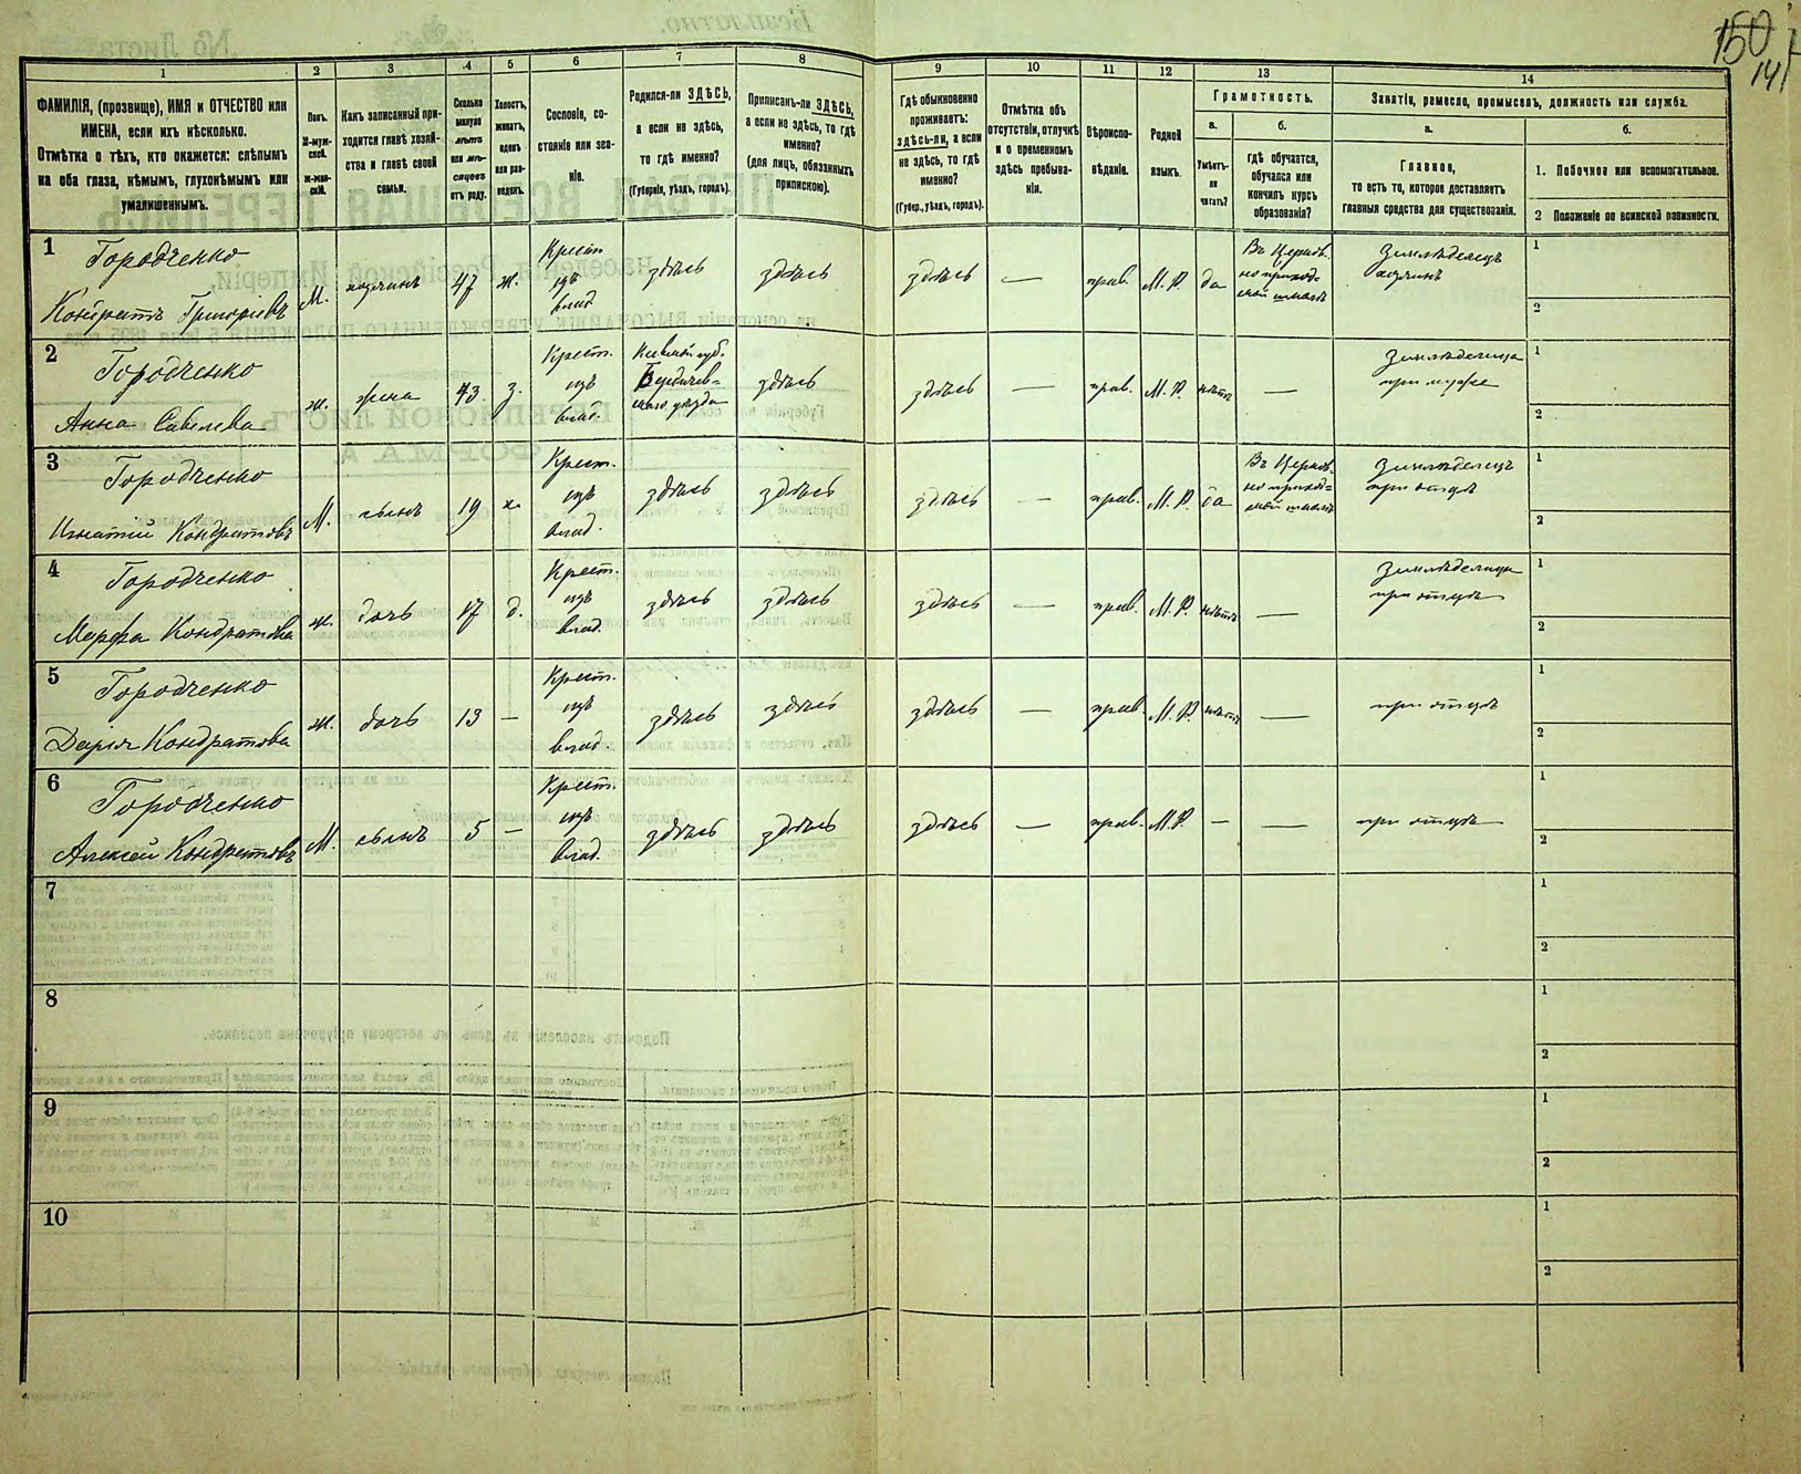 150
141
1
2
3
4
5
6
7
8
9
10
11
12
13
14
ФАМИЛІЯ, (прозвище), ИМЯ и ОТЧЕСТВО или
ИМЕНА, если ихъ нѣсколько.
Отмѣтка о тѣхъ, кто окажется: слѣпымъ
на оба глаза, нѣмымъ, глухонѣмымъ или
умалишеннымъ.
Полъ.
М-муж-
ской.
Ж-жен-
скій.
Какъ записанный при-
ходится главѣ хозяй-
ства и главѣ своей
семьи.
Сколько
минуло
лѣтъ
или мѣ-
сяцевъ
отъ роду.
Холостъ,
женатъ,
вдовъ
или раз-
веденъ.
Сословіе, со-
стояніе или зва-
ніе.
Родился-ли ЗДѢСЬ,
а если не здѣсь,
то гдѣ именно?
(Губернія, уѣздъ, городъ).
Приписанъ-ли ЗДѢСЬ,
а если не здѣсь, то гдѣ
именно?
(для лицъ, обязанныхъ
припискою).
Гдѣ обыкновенно
проживаетъ:
здѣсь-ли, а если
не здѣсь, то гдѣ
именно?
(Губер., уѣздъ, городъ).
Отмѣтка объ
отсутствіи, отлучкѣ
и о временномъ
здѣсь пребыва-
ніи.
Вѣроиспо-
вѣданіе.
Родной
языкъ.
Грамотность.
а.
Умѣетъ-
ли
читать?
б.
гдѣ обучается,
обучался или
кончилъ курсъ
образованія?
Занятіе, ремесло, промыселъ, должность или служба.
а.
Главное,
то есть то, которое доставляетъ
главныя средства для существованія.
б.
1. Побочное или вспомогательное.
2 Положеніе по воинской повинности.
1 Городченко
Кондратъ Григоріевъ
М. хозяинъ 47 ж.
Крест.
изъ
влад.
здѣсь здѣсь здѣсь — прав. М. Р. да
Въ Церков-
но приход-
ской школѣ
Земледѣлецъ
хозяинъ
1
2
2 Городченко
Анна Савелева
ж. жена 43 з.
Крест.
изъ
влад.
Кіевской губ.
Бердичев-
скаго уѣзда
здѣсь здѣсь — прав. М. Р. нѣтъ —
Земледѣлица
при мужѣ
1
2
3 Городченко
Игнатій Кондратовъ
М. сынъ 19 х.
Крест.
изъ
влад.
здѣсь здѣсь здѣсь — прав. М. Р. да
Въ Церков-
но приход-
ской школѣ
Земледѣлецъ
при отцѣ
1
2
4 Городченко
Марфа Кондратова
ж. дочь 17 д.
Крест.
изъ
влад.
здѣсь здѣсь здѣсь — прав. М. Р. нѣтъ —
Земледѣлица
при отцѣ
1
2
5 Городченко
Дарія Кондратова
ж. дочь 13 —
Крест.
изъ
влад.
здѣсь здѣсь здѣсь — прав. М. Р. нѣтъ —
при отцѣ
1
2
6 Городченко
Алексей Кондратовъ
М. сынъ 5 —
Крест.
изъ
влад.
здѣсь здѣсь здѣсь — прав. М. Р. — —
при отцѣ
1
2
7
1
2
8
1
2
9
1
2
10
1
2